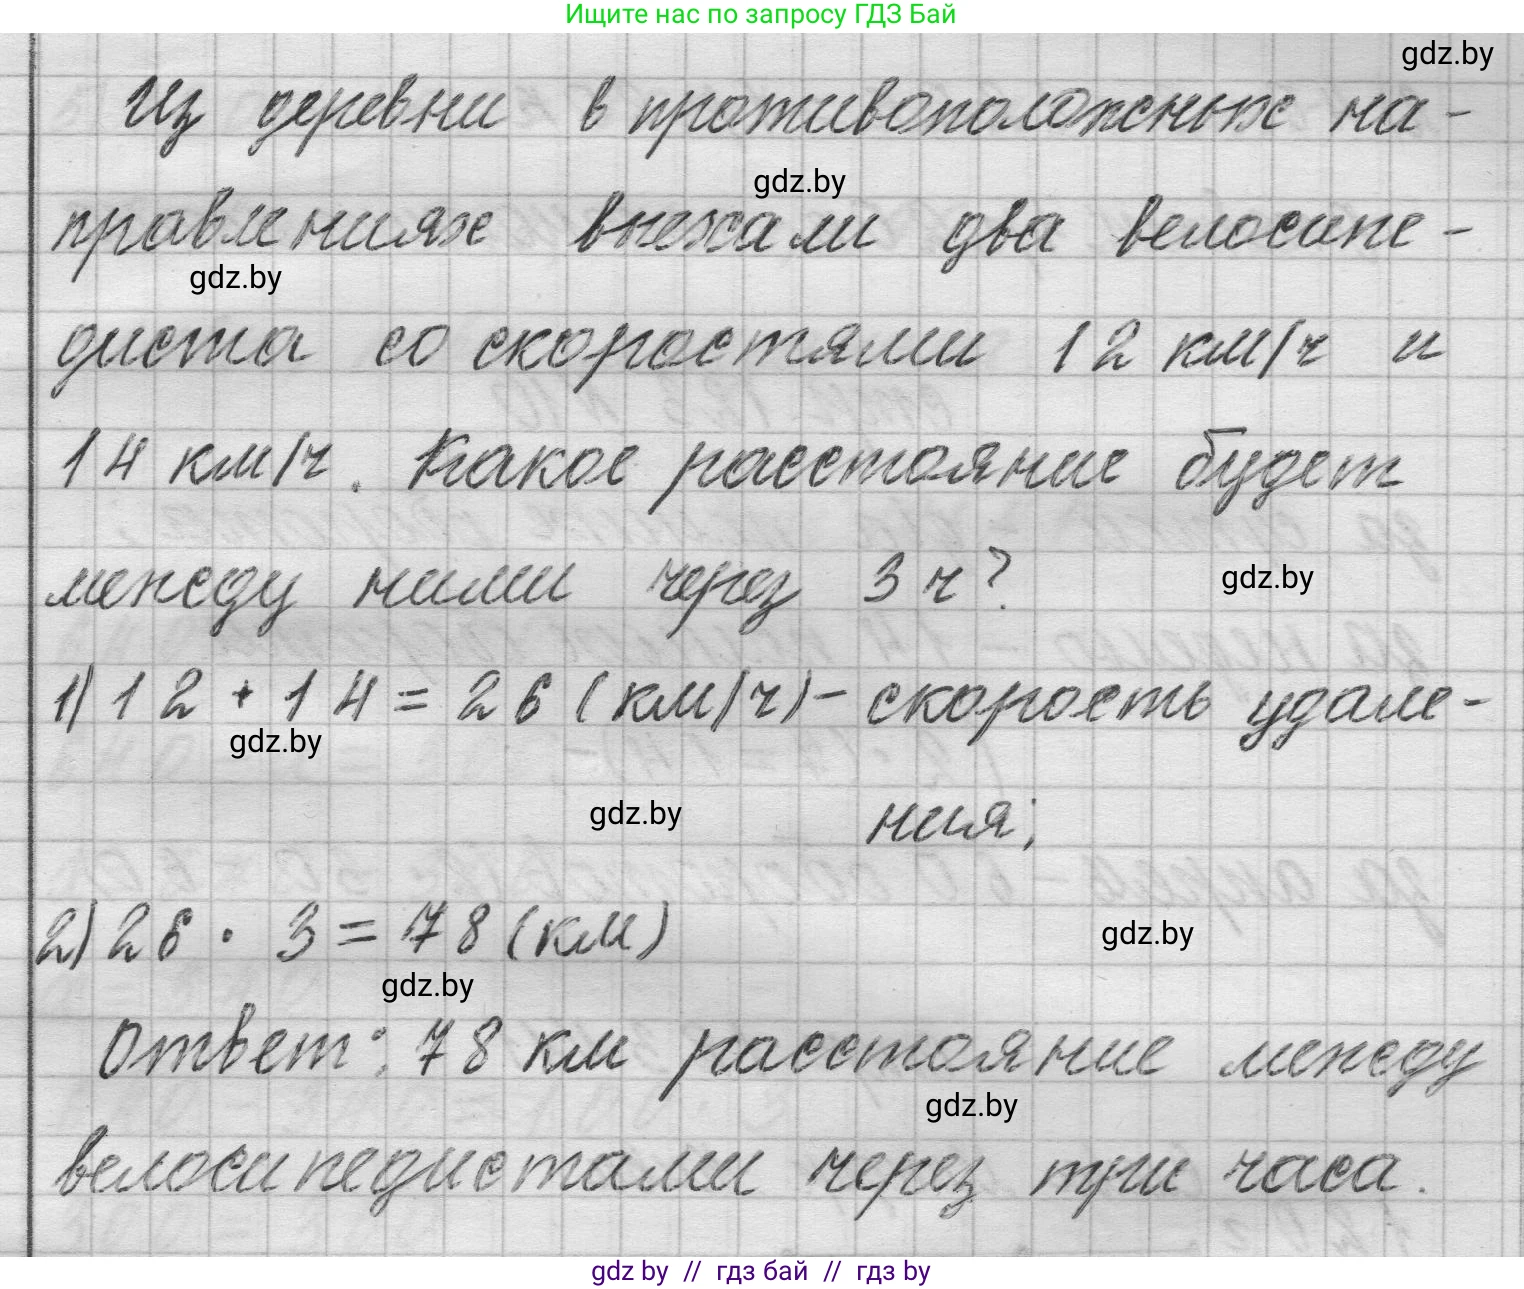 Ищите нас по запросу ГДЗ Бай
gdz.by
Из деревни в противоположных на-
gdz.by
правлениях выехали два велосипе-
gdz.by
диста со скоростями 12 км/ч и
14 км/ч. Какое расстояние будет
между ними через 3 ч?
gdz.by
1) 12 + 14 = 26 (км/ч) - скорость удале-
gdz.by
gdz.by
ния;
2) 26 · 3 = 78 (км)
gdz.by
gdz.by
Ответ: 78 км расстояние между
gdz.by
велосипедистами через три часа.
gdz by // гдз бай // гдз by